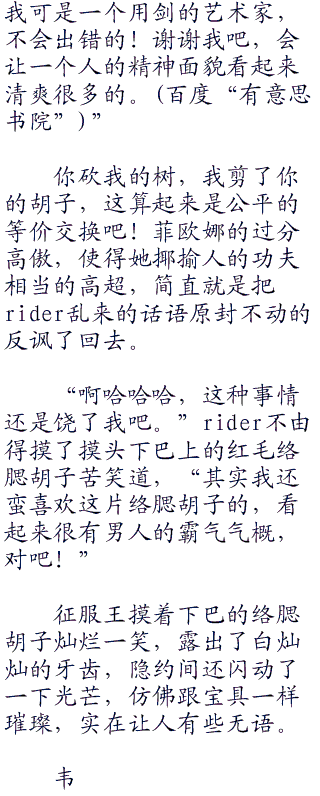 我可是一个用剑的艺术家，
不会出错的！谢谢我吧，会
让一个人的精神面貌看起来
清爽很多的。(百度“有意思
书院”)”
你砍我的树，我剪了你
的胡子，这算起来是公平的
等价交换吧！菲欧娜的过分
高傲，使得她揶揄人的功夫
相当的高超，简直就是把
rider乱来的话语原封不动的
反讽了回去。
“啊哈哈哈，这种事情
还是饶了我吧。”rider不由
得摸了摸头下巴上的红毛络
腮胡子苦笑道，“其实我还
蛮喜欢这片络腮胡子的，看
起来很有男人的霸气气概，
对吧！”
征服王摸着下巴的络腮
胡子灿烂一笑，露出了白灿
灿的牙齿，隐约间还闪动了
一下光芒，仿佛跟宝具一样
璀璨，实在让人有些无语。
韦